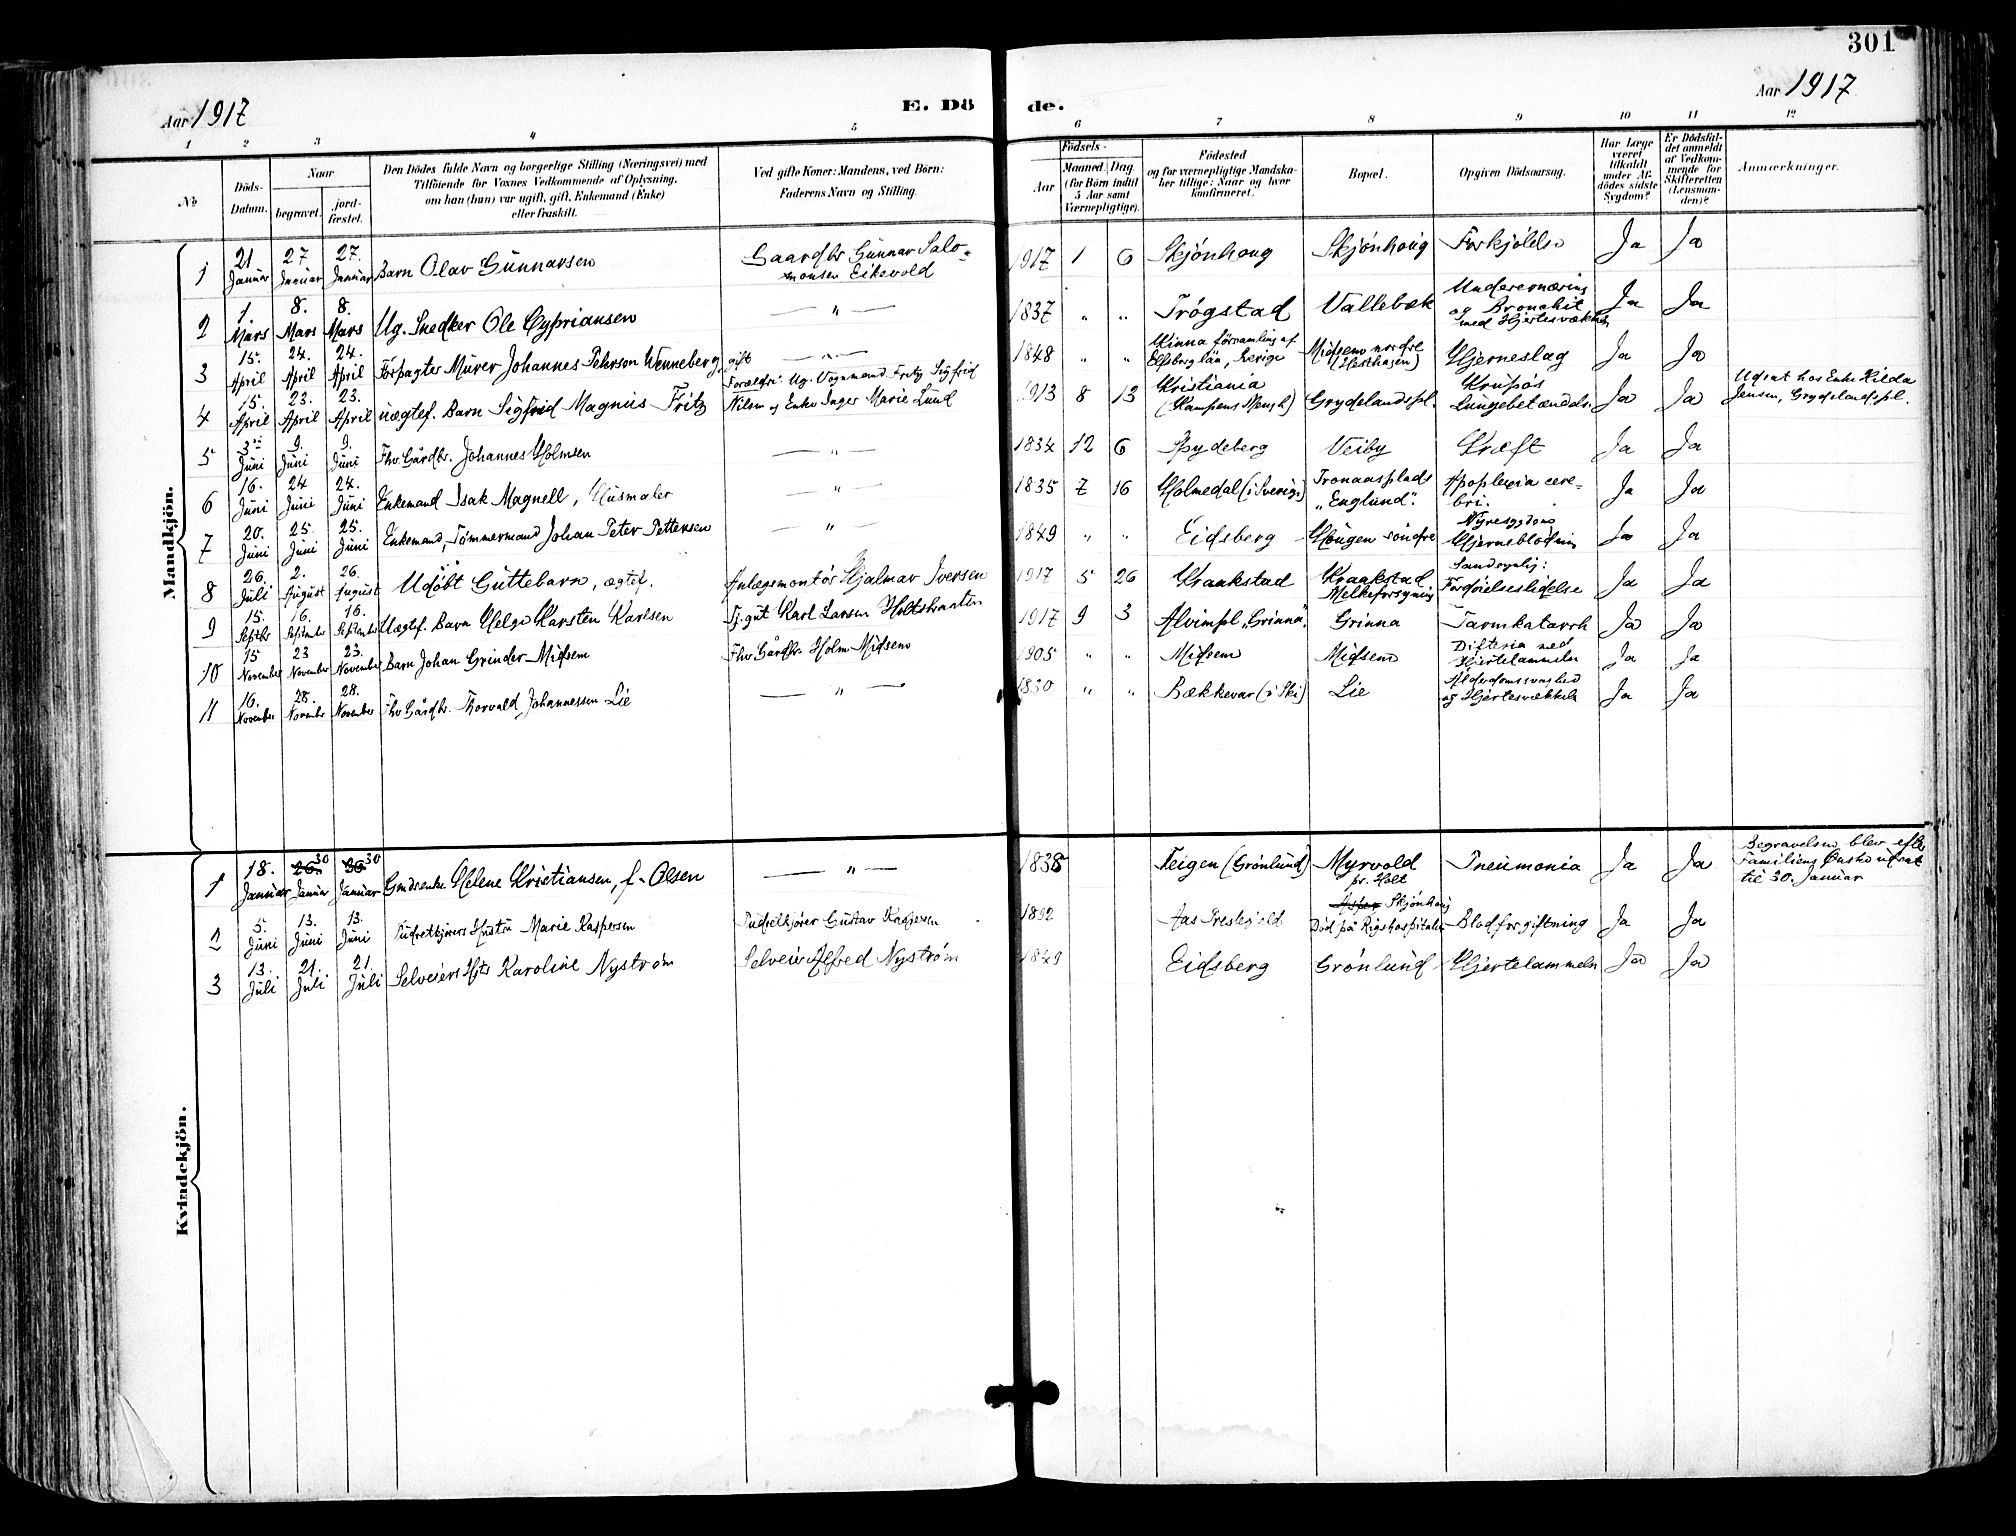 301
Aar 1917
E. Dö
de.
Aar 1917
1 2 3 4 5 6 7 8 9 10 11 12
№
Döds-
Datum.
Naar
begravet.
jord-
fæstet.
Den Dödes fulde Navn og borgerlige Stilling (Næringsvei) med
Tilföiende for Voxnes Vedkommende af Oplysning,
om han (hun) var ugift, gift, Enkemand (Enke)
eller fraskilt.
Ved gifte Koner: Mandens, ved Börn:
Faderens Navn og Stilling.
Födsels-
Aar
Maaned
Dag
(for Börn indtil
5 Aar samt
Værnepligtige).
Födested
og for værnepligtige Mandska-
ber tillige: Naar og hvor
konfirmeret.
Bopæl.
Opgiven Dödsaarsag.
Har Læge
været
tilkaldt
under Af-
dödes sidste
Sygdom?
Er Dödsfal-
det anmeldt
af Vedkom-
mende for
Skifteretten
(Lensman-
den)?
Anmærkninger.
Mandkjön.
1 21 Januar 27 Januar 27. Januar Barn Olav Gunnarsen Gaardbr Gunnar Salo-
monsen Eikevold 1917 1 6 Skjønhaug Skjønhaug Forkjølelse Ja Ja
2 1. Mars 8. Mars 8. Mars Ug. Snedker Ole Cypriansen — „ — 1837 „ „ Trøgstad Vallebæk Underernæring
og Bronchit
med Hjertesvækkelse Ja Ja
3 15. April 24. April 24. April Forpagter Murer Johannes Pehrson Wenneberg, gift — „ — 1848 „ „ Kinna församling af
Elfsborg län, Sverige Midsem nordre
(Hesthagen) Hjerneslag Ja Ja
4 15. April 23. April 23. April uægtef. Barn Sigfrid Magnus Fritz Forældre: Ug. Vognmand Fritz Sigfrid
Nilsen og Enke Inger Marie Lund 1913 8 13 Kristiania
(Kampens Mensh) Grydelandspl. Krupøs
Lungebetændelse Ja Ja Udsat hos Enke Hilda
Jensen, Grydelandspl.
5 3die Juni 9. Juni 9. Juni Fhv. Gårdbr. Johannes Holmsen — „ — 1834 12 6 Spydeberg Veiby Kræft Ja Ja
6 16. Juni 24 Juni 24. Juni Enkemand Isak Magnell, Husmaler — „ — 1835 7 16 Holmedal (i Sverige) Tronaasplads
„Englund". Apoplexia cere-
bri. Ja Ja
7 20. Juni 25. Juni 25. Juni Enkemand, Tømmermand Johan Peter Pettersen — „ — 1849 „ „ Eidsberg Haugen søndre Nyresygdom
Hjerneblødning Ja Ja
8 26. Juli 2. August 26. August Udøbt Guttebarn, ægtef. Anlægsmontør Hjalmar Iversen 1917 5 26 Kraakstad Kraakstad
Melkeforsyning Sandsynlig:
Fordøielseslidelse Ja Ja
9 15. Septbr 16. September 16. September Uægtef. Barn Helge Karsten Karlsen Tj.gut Karl Larsen Holtsbraaten 1917 9 3 Alvimpl „Grinna". Grinna Tarmkatarrh Ja Ja
10 15 November 23 November 23. November Barn Johan Grinder Midsem Fhv. Gårdbr. Holm Midsem 1905 „ „ Midsem Midsem Difteria med
Hjertelammelse Ja Ja
11 16. November 28. Novembr 28. November Fhv. Gårdbr. Thorvald Johannessen Lie — „ — 1830 „ „ Bækkevar (i Ski) Lie Alderdomssvaghed
og Hjertesvækkelse Ja Ja
Kvindekjön.
1 18. Januar 26. 30 Januar 26 30 Januar Gmdsenke Helene Kristiansen, f. Olsen — „ — 1835 Teigen (Grønlund) Myrvold
pr. Holt Pneumonia Ja Ja Begravelsen blev efter
Familiens Ønske udsat
til 30. Januar
2 5. Juni 13. Juni 13. Juni Hustru Marie Kaspersen Gustav Kaspersen 1892 Aas Prestegjeld Skjønhaug
Død på Rigshospitalet Blodforgiftning Ja Ja
3 13. Juli 21. Juli 21. Juli Selveiers Hstr Karoline Nystrøm Selveier Alfred Nystrøm 1849 Eidsberg Grønlund Hjertelammelse Ja Ja